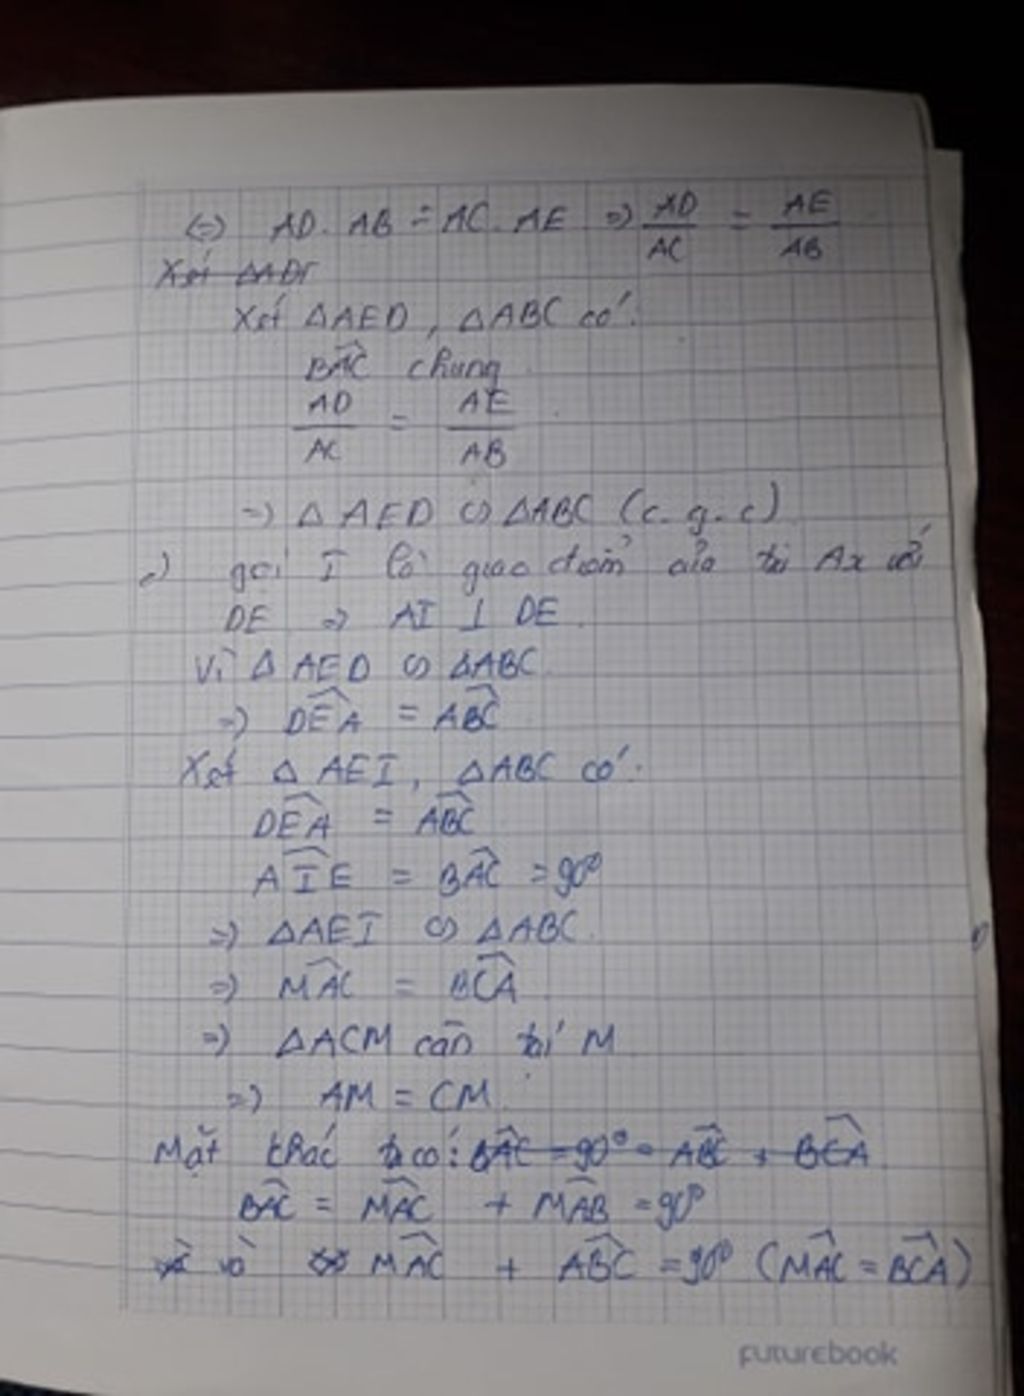 (=) AD. AB = AC. AE => AD/AC = AE/AB
Xét ΔADI
Xét ΔAED, ΔABC có:
BAC chung
AD/AC = AE/AB
=> Δ AED ∽ ΔABC (c.g.c)
=) gọi I là giao điểm của tia Ax với
DE => AI ⊥ DE
Vì Δ AED ∽ ΔABC
=> DEA = ABC
Xét Δ AEI, ΔABC có:
DEA = ABC
AIE = BAC = 90°
=> ΔAEI ∽ ΔABC.
=> MAC = BCA
=> ΔACM cân tại M
=> AM = CM
Mặt khác ta có: BAC = 90° = ABC + BCA
BAC = MAC + MAB = 90°
và MAC + ABC = 90° (MAC = BCA)
futurebook